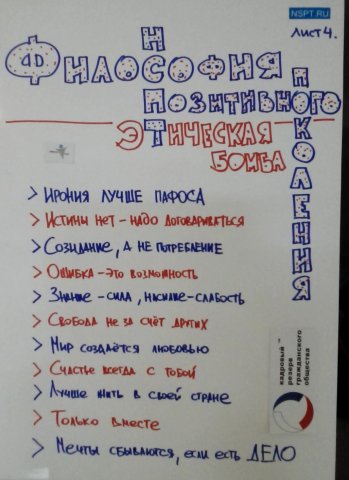 NSPT.RU
Лист 4.
НСПТ
ФИЛОСОФИЯ
ПОЗИТИВНОГО
ПОКОЛЕНИЯ
ЭТИЧЕСКАЯ
БОМБА
> Ирония лучше пафоса
> Истины нет - надо договариваться
> Созидание, а не потребление
> Ошибка - это возможность
> Знание - сила, насилие - слабость
> Свобода не за счёт других
> Мир создаётся любовью
> Счастье всегда с тобой
> Лучше жить в своей стране
> Только вместе
> Мечты сбываются, если есть ДЕЛО
кадровый
резерв
гражданского
общества